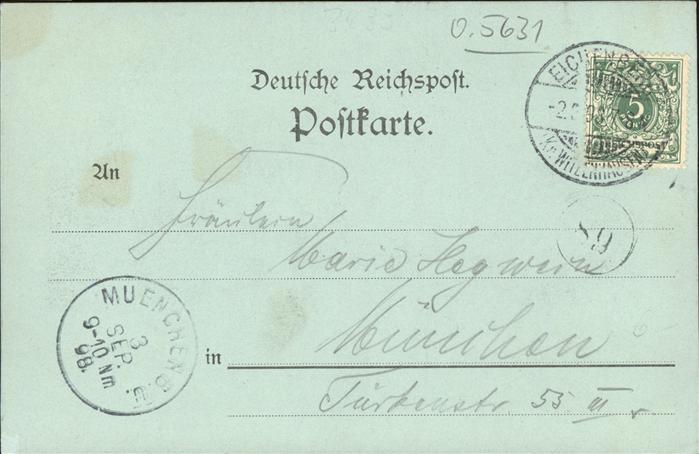 0.5631
Deutsche Reichspost.
Postkarte.
EICHENBERG
5
REICHSPOST
An
Fräulein
Marie Hegwein
89
MUENCHEN 8.
3
SEP.
9-10 Nm
98.
in München
Türkenstr. 55 III r